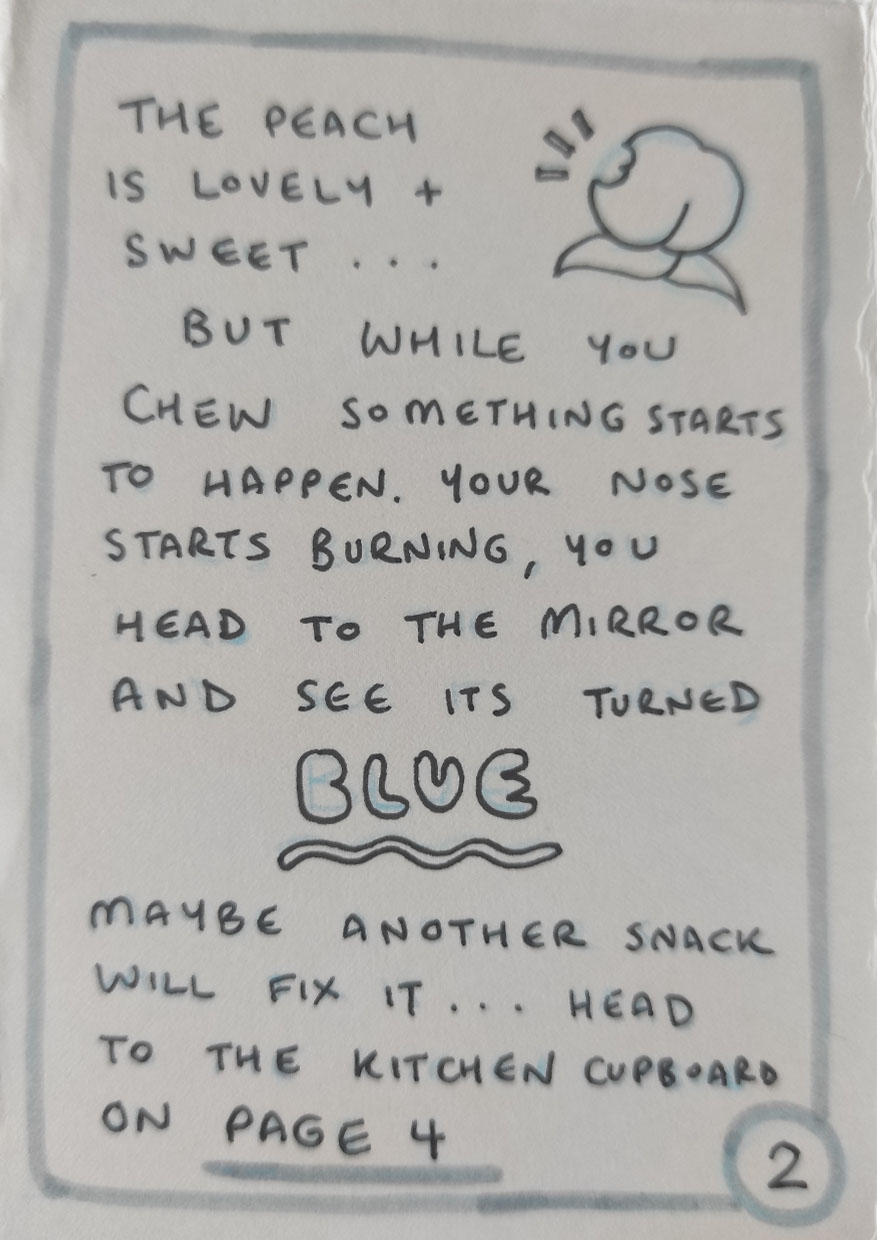 THE PEACH
IS LOVELY +
SWEET ...
BUT WHILE YOU
CHEW SOMETHING STARTS
TO HAPPEN. YOUR NOSE
STARTS BURNING, YOU
HEAD TO THE MIRROR
AND SEE ITS TURNED
BLUE
MAYBE ANOTHER SNACK
WILL FIX IT ... HEAD
TO THE KITCHEN CUPBOARD
ON PAGE 4
2